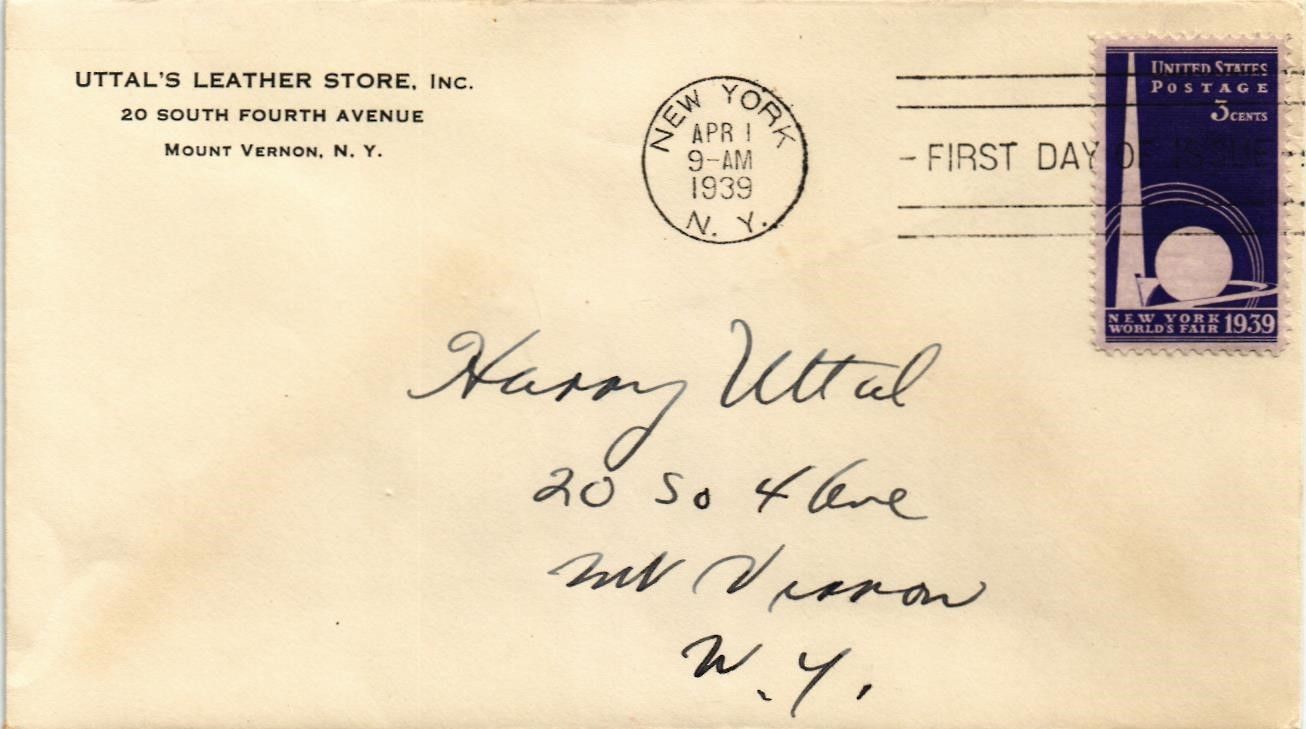 UTTAL'S LEATHER STORE, INC.
20 SOUTH FOURTH AVENUE
MOUNT VERNON, N. Y.
NEW YORK
APR 1
9-AM
1939
N. Y.
- FIRST DAY OF ISSUE -
UNITED STATES
POSTAGE
3 CENTS
NEW YORK
WORLD'S FAIR 1939
Harry Uttal
20 So 4 Ave
Mt Vernon
N.Y.